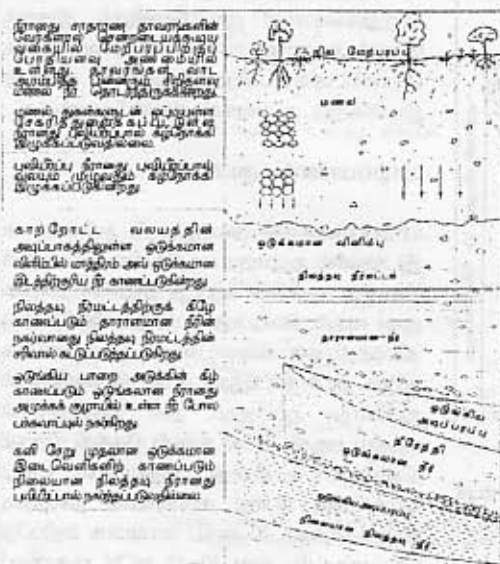 நீரானது சாதாரண தாவரங்களின்
மேற்பரப்பிற்குப்
அண்மையில்
தாவரங்கள் வாட
மணல் நீர்
மணல் துகள்களுடன்
நீரானது புவியீர்ப்பால் கீழ்நோக்கி
இழுக்கப்படுவதில்லை.
புவியீர்ப்பு நீரானது புவியீர்ப்புவிசை
கீழ்நோக்கி
இழுக்கப்படுகின்றது.
காற்றோட்ட வலயத்தின்
அடிப்பாகத்திலுள்ள ஒடுக்கமான
விளிம்பில் மாத்திரம் அவ் ஒடுக்கமான
இடத்திற்குரிய நீர் காணப்படுகின்றது
நிலத்தடி நீர்மட்டத்திற்குக் கீழே
காணப்படும் தாராளமான நீரின்
நகர்வானது நிலத்தடி நீர்மட்டத்தின்
சரிவால் கட்டுப்படுத்தப்படுகிறது
ஒடுங்கிய பாறை அடுக்கின் கீழ்
காணப்படும் ஒடுங்கலான நீரானது
அமுக்கக் குழாயில் உள்ள நீர் போல
நகர்கிறது
களி சேறு முதலான ஒடுக்கமான
இடைவெளிகளிற் காணப்படும்
நிலையான நிலத்தடி நீரானது
புவியீர்ப்பால் நகர்த்தப்படுவதில்லை
நில மேற்பரப்பு
மணல்
ஒடுக்கமான விளிம்பு
நிலத்தடி நீர்மட்டம்
தாராளமான நீர்
ஒடுங்கிய
அடிப்பரப்பு
நீரேந்தி
ஒடுங்கலான நீர்
நிலையான நிலத்தடி நீர்